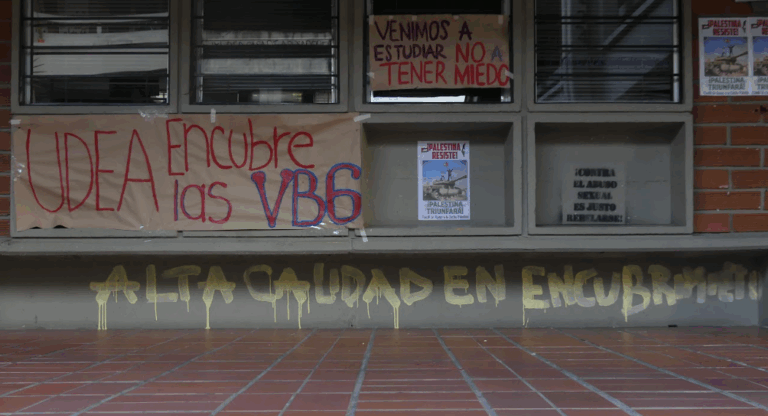 VENIMOS A
ESTUDIAR NO A
TENER MIEDO
UDEA Encubre
las VB6
¡PALESTINA
RESISTE!
¡PALESTINA
TRIUNFARÁ!
¡PALESTINA
RESISTE!
¡PALESTINA
TRIUNFARÁ!
¡CONTRA
EL ABUSO
SEXUAL
ES JUSTO
REBELARSE!
ALTA CALIDAD EN ENCUBRIMIENTO